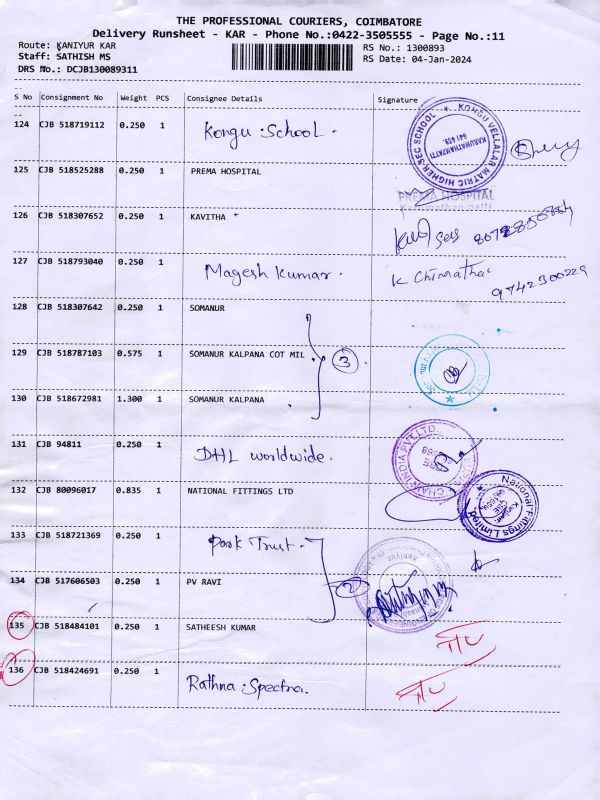 THE PROFESSIONAL COURIERS, COIMBATORE
Delivery Runsheet - KAR - Phone No.:0422-3505555 - Page No.:11
Route: KANIYUR KAR RS No.: 1300893
Staff: SATHISH MS RS Date: 04-Jan-2024
DRS No.: DCJB130089311
S No Consignment No Weight PCS Consignee Details Signature
124 CJB 518719112 0.250 1 Kongu School.
KONGU VELLALAR MATRIC HIGHER SEC SCHOOL
KARUMATHAMPATTI
641 659.
125 CJB 518525288 0.250 1 PREMA HOSPITAL
PREMA HOSPITAL
126 CJB 518307652 0.250 1 KAVITHA
127 CJB 518793040 0.250 1 Magesh Kumar. K
9742300229
128 CJB 518307642 0.250 1 SOMANUR
129 CJB 518787103 0.575 1 SOMANUR KALPANA COT MIL 3
130 CJB 518672981 1.300 1 SOMANUR KALPANA
131 CJB 94811 0.250 1 DHL worldwide.
INDIA PVT. LTD.
132 CJB 80096017 0.835 1 NATIONAL FITTINGS LTD
National Fittings Limited
133 CJB 518721369 0.250 1 Park Trust.
Kaniyur
134 CJB 517606503 0.250 1 PV RAVI 2
135 CJB 518484101 0.250 1 SATHEESH KUMAR
136 CJB 518424691 0.250 1 Rathna Spectra.